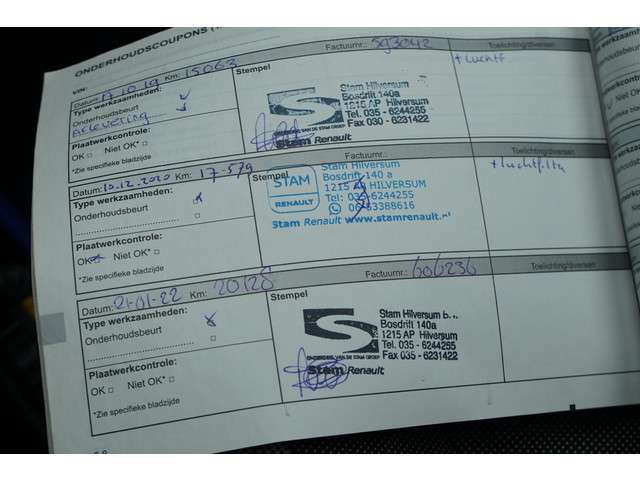 ONDERHOUDSCOUPONS
VIN:
Datum: 17.10.19 Km: 15063 Factuurnr.: 593042 Toelichting/diversen
Type werkzaamheden:
Onderhoudsbeurt
Aflevering
Plaatwerkcontrole:
OK □ Niet OK* □
*Zie specifieke bladzijde
Stempel
Stam Hilversum
Bosdrift 140a
1215 AP Hilversum
Tel. 035 - 6244255
Fax 030 - 6231422
Stam Renault
+ Luchtf
Datum: 10.12.2020 Km: 17-579 Factuurnr.: Toelichting/diversen
Type werkzaamheden:
Onderhoudsbeurt
Plaatwerkcontrole:
OK Niet OK* □
*Zie specifieke bladzijde
Stempel
STAM
RENAULT
Stam Hilversum
Bosdrift 140 a
1215 HILVERSUM
Tel: 035-6244255
06-53388616
Stam Renault www.stamrenault.nl
+ luchtfilter
Datum: 21-01-22 Km: 20128 Factuurnr.: 606236 Toelichting/diversen
Type werkzaamheden:
Onderhoudsbeurt
Plaatwerkcontrole:
OK □ Niet OK* □
*Zie specifieke bladzijde
Stempel
Stam Hilversum b.v.
Bosdrift 140a
1215 AP Hilversum
Tel. 035 - 6244255
Fax 035 - 6231422
ONDERDEEL VAN DE STAM GROEP
Stam Renault